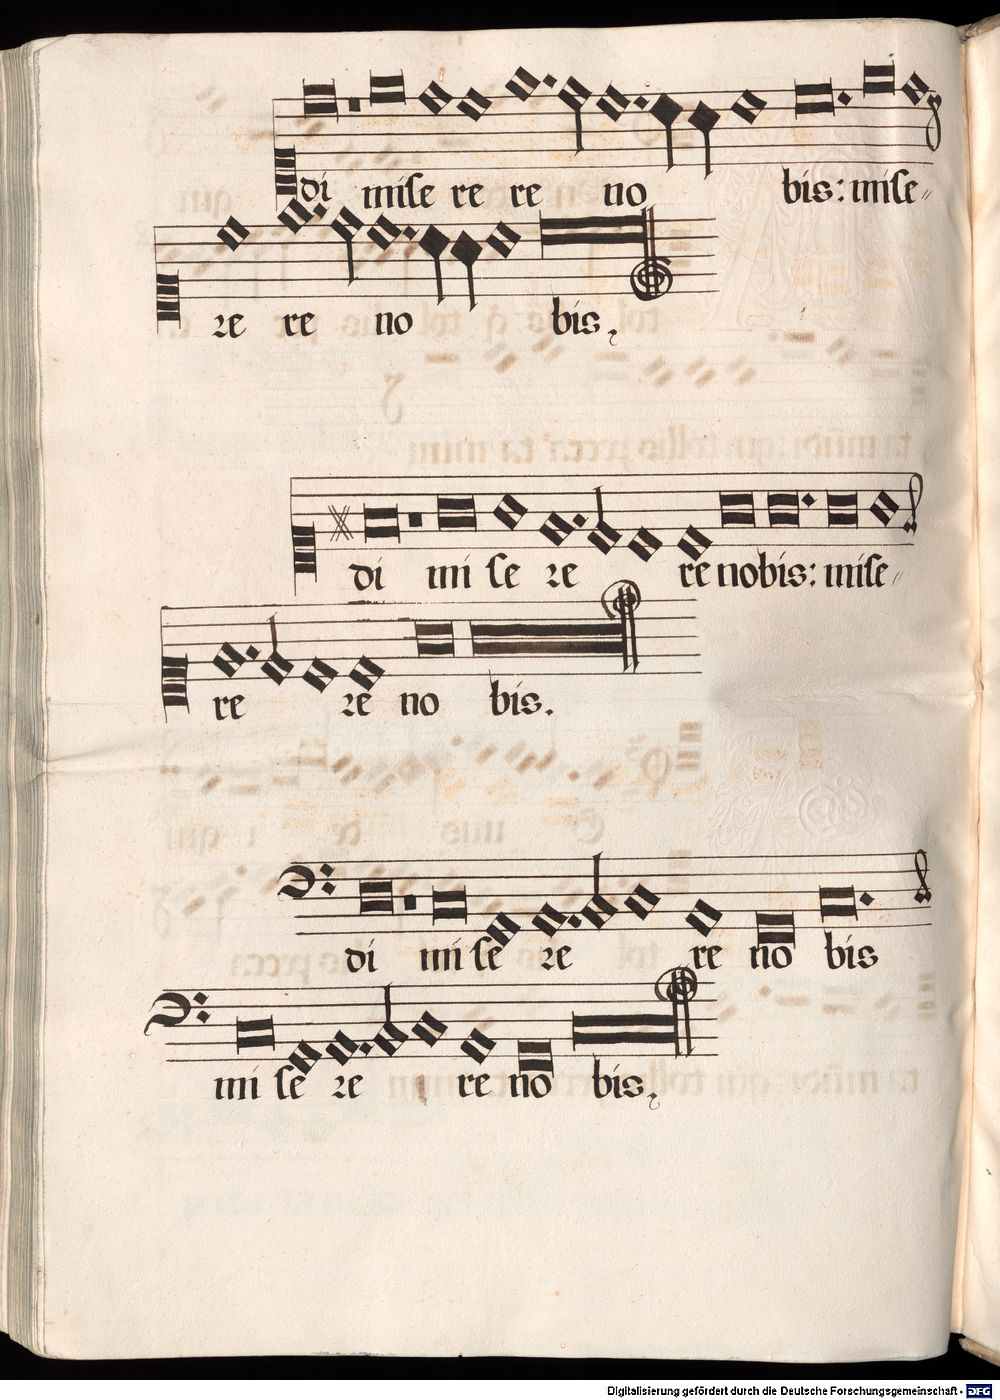 di mise re re no bis: mise〃
re re no bis.
di mi se re re nobis: mise〃
re re no bis.
di mi se re re no bis
mi se re re no bis.
Digitalisierung gefördert durch die Deutsche Forschungsgemeinschaft - DFG